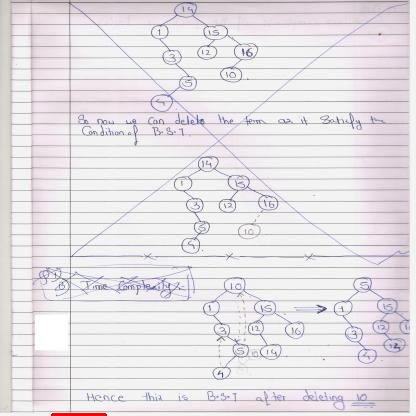 14
1 15
3 12 16
5 10
4
So now we can delete the term as it satisfy the
Condition of B.S.T.
14
1 15
3 12 16
5 10
4
Time Complexity
10 5
1 15 1 15
3 12 16 3 12
5 14 4
4
Hence this is B.S.T after deleting 10